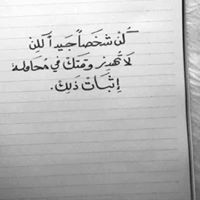 كُن شخصاً جيداً لكن
لا تُهدِر وقتك في محاولة
إثبات ذلِكْ.